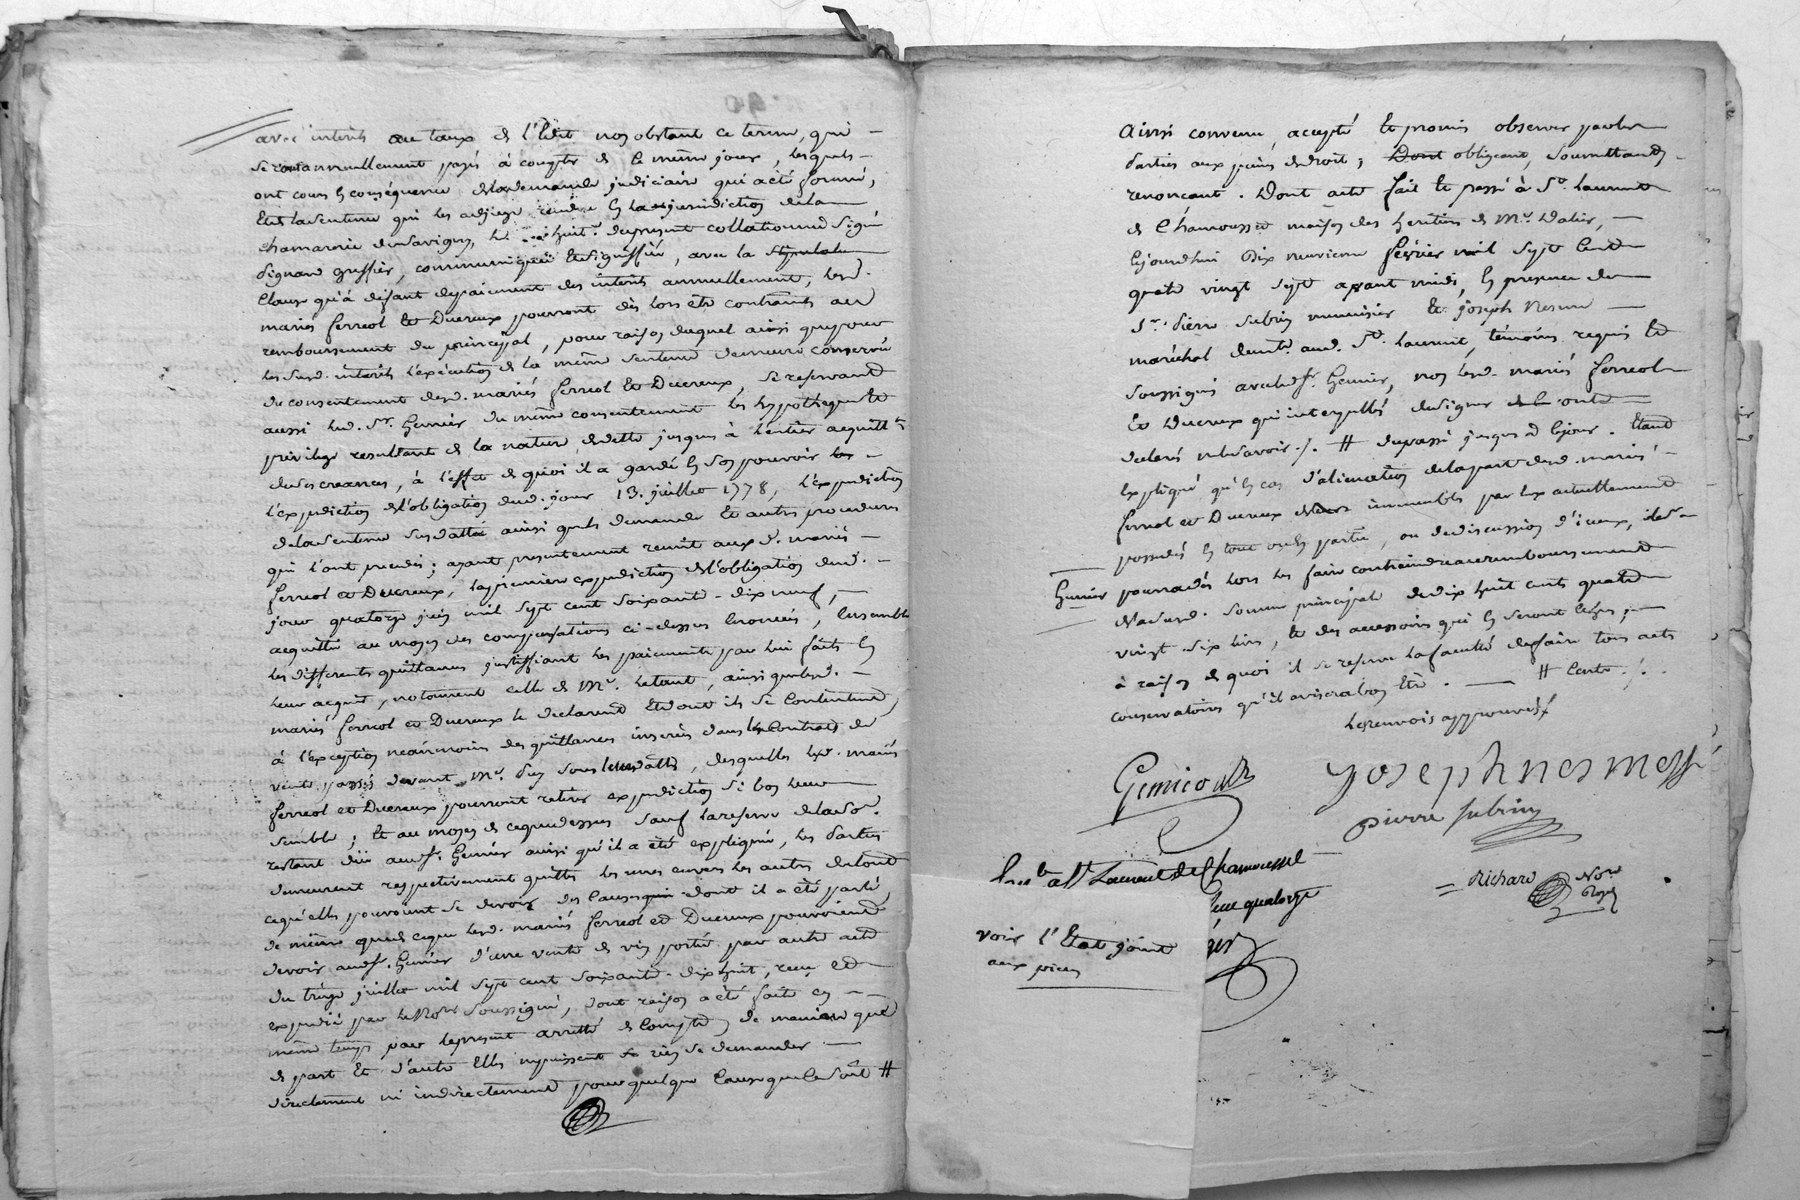 avec interets au taux de l'Edit nos obstant ce terme, qui
seront annuellement payés à compter de le même jour, lesquels
ont cours en conséquence de la demande judiciaire qui a été formé,
Et de la sentence qui les adjuge rendue en la jurisdiction de la
chamarerie de Savigny, le huit du present collationné Signé
greffier, communiquée et Signiffiée, avec la
Clause qu'à défaut de paiement des interets annuellement, lesd.
mariés ferreol et Ducreux pourront dès lors être contraints au
remboursement du principal, pour raison duquel ainsi que pour
lesd. interets l'exécution de la même sentence demeure conservée
du consentement desd. mariés ferreol et Ducreux, se reservant
aussi led. Sr. Genier du même consentement les hypotheques et
privilege resultant de la nature de dette jusques à l'entier acquitt.t
de ses creances, à l'effet de quoi il a gardé en son pouvoir
l'expedition de l'obligation dud. jour 13. juillet 1778, l'expedition
de la Sentence susdattée ainsi que les demandes et autres procedures
qui l'ont precedé; ayant presentement remit aux d. mariés
ferreol et Ducreux, la premiere expedition de l'obligation dud.
jour quatorze juin mil sept cent soixante-dix neuf,
acquittée au moyen des compensations ci-dessus énoncées, Ensemble
les differents quittances justiffiant les paiements par lui faits en
leur acquit, notamment celle de Mr. Letant, ainsi que lesd.
mariés ferreol et Ducreux le declarent Et dont ils se Contentent,
à l'exception néanmoins des quittances inserées dans les Contrats de
vente passés devant Me. sous leurs dattes, desquelles lesd. mariés
ferreol et Ducreux pourront retirer expedition Si bon leur
semble; Et au moyen de ce que dessus sauf la reserve de la so.e
restant düe aud. Sr. Genier ainsi qu'il a été expliqué, les parties
demeurent respectivement quittes les unes envers les autres de tout
ce qu'elles pouvoient se devoir des Causes dont il a été parlé,
de même que de ce que lesd. mariés ferreol et Ducreux pouvoient
devoir aud. Sr. Genier d'une vente de vin portée par autre acte
du treize juillet mil sept cent soixante-dix huit, reçu et
expedié par le No.re Soussigné, dont raison a été faite en
même temps par le present arretté de Compte, De maniere que
de part Et d'autre Elles ne puissent rien se demander
directement ni indirectement pour quelque Cause que ce soit #
Ainsi convenu, accepté et promis observer par les
parties aux peines de droit; Dont obligeant, Soumettant,
renonçant. Dont acte fait et passé à St. Laurent
de Chamousset maison des heritiers de Mr. Dalier,
Cejourd'hui Dix neuvieme fevrier mil Sept Cent
quatre vingt Sept avant midi, En presence de
Sr. pierre Subrin menuisier Et joseph Nesme
maréchal demt. aud. St. Laurent, témoins requis et
soussignés avec led. Sr. Genier, non lesd. mariés ferreol
Et Ducreux qui interpellés de signer ont
declaré ne le savoir ./. # du passé jusqu'à cejour. Etant
Expliqué qu'en cas d'alienation de la part desd. mariés
ferreol et Ducreux immeubles par eux actuellement
possedés en tout ou en partie, ou de discussion d'iceux, led. Sr.
Genier pourra dès lors les faire contraindre au remboursement
de lad. somme principale de dix huit cents quatre
vingt dix livres, Et des accessoires qui en seront échus;
à raison de quoi il se reserve la faculté de faire tous actes
conservatoires qu'il avisera bon Etre. — # Cents ./.
les renvois approuvés
Joseph nesme
pierre subrin
Richard No.re Royal
à St Laurent de Chamousset
quatorze
voir l'Etat joint
aux pieces